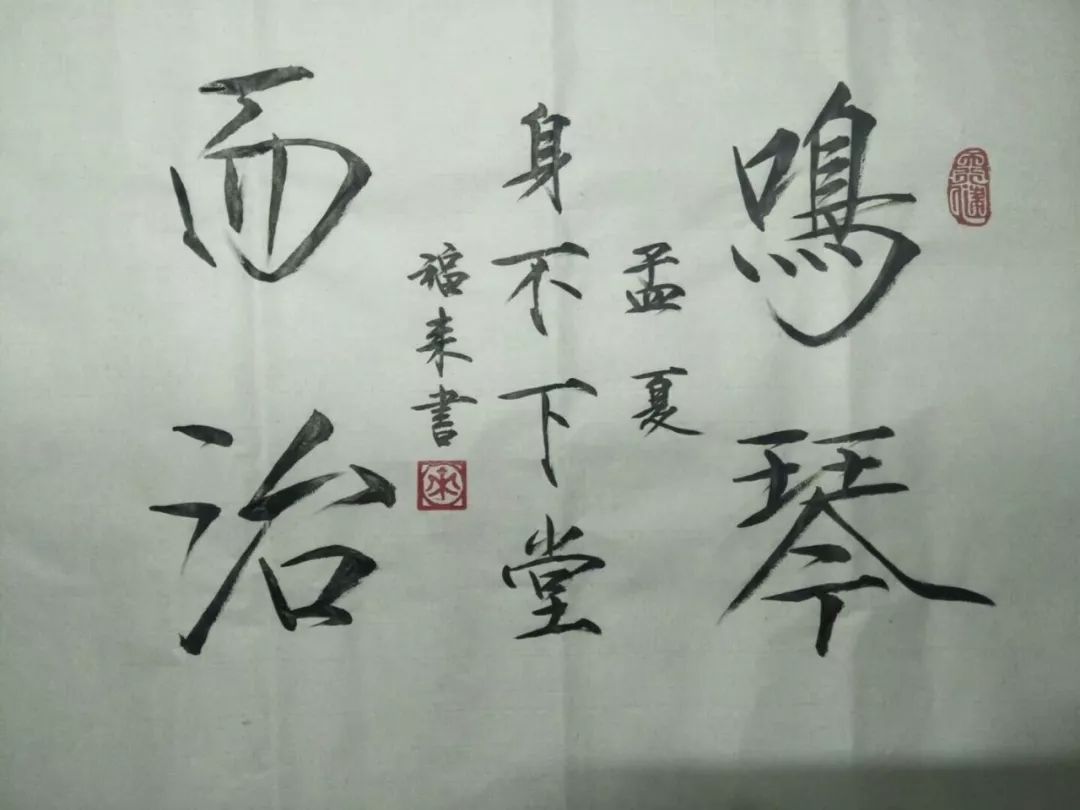 鳴琴
孟夏
身不下堂
福来書
而治